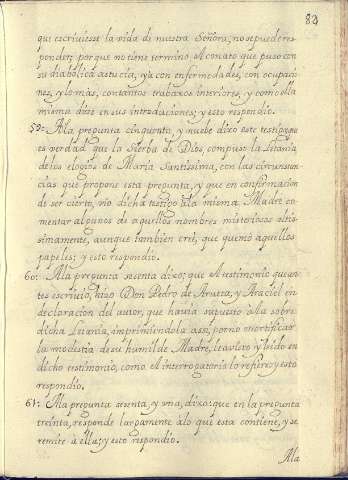 83
que escriviesse la vida de nuestra Señora, no se puede res-
ponder; por que no tiene termino el conato que puso con
su diabolica astucia, ya con enfermedades, con ocupacio-
nes, y lo más, con tantos trabaxos interiores, y como ella
misma dize en sus introduciones; y esto respondio.
59: A la pregunta cinquenta, y nuebe dixo este testigo que
es verdad que la Sierba de Dios, compuso la Letania
de los elogios de Maria Santissima, con las circunstan-
cias que propone esta pregunta, y que en confirmacion
de ser cierto, vio dicha testigo a la misma Madre co-
mentar algunos de aquellos nombres misteriosos altis-
simamente, aunque tambien creè, que quemò aquellos
papeles; y esto respondio.
60: A la pregunta sesenta dixo; que el testimonio que an-
tes escrivio, hizo Don Pedro de Arueta, y Araciel en
declaracion del autor, que havia supuesto a la sobre
dicha Letania, imprimiendola assi, por no mortificar
la modestia de su humilde Madre, le a visto y leido en
dicho testimonio, como el interrogatorio lo refiere; y esto
respondio.
61: A la pregunta sesenta, y una, dixo: que en la pregunta
treinta, responde largamente a lo que esta contiene, y se
remite à ella; y esto respondio.
A la